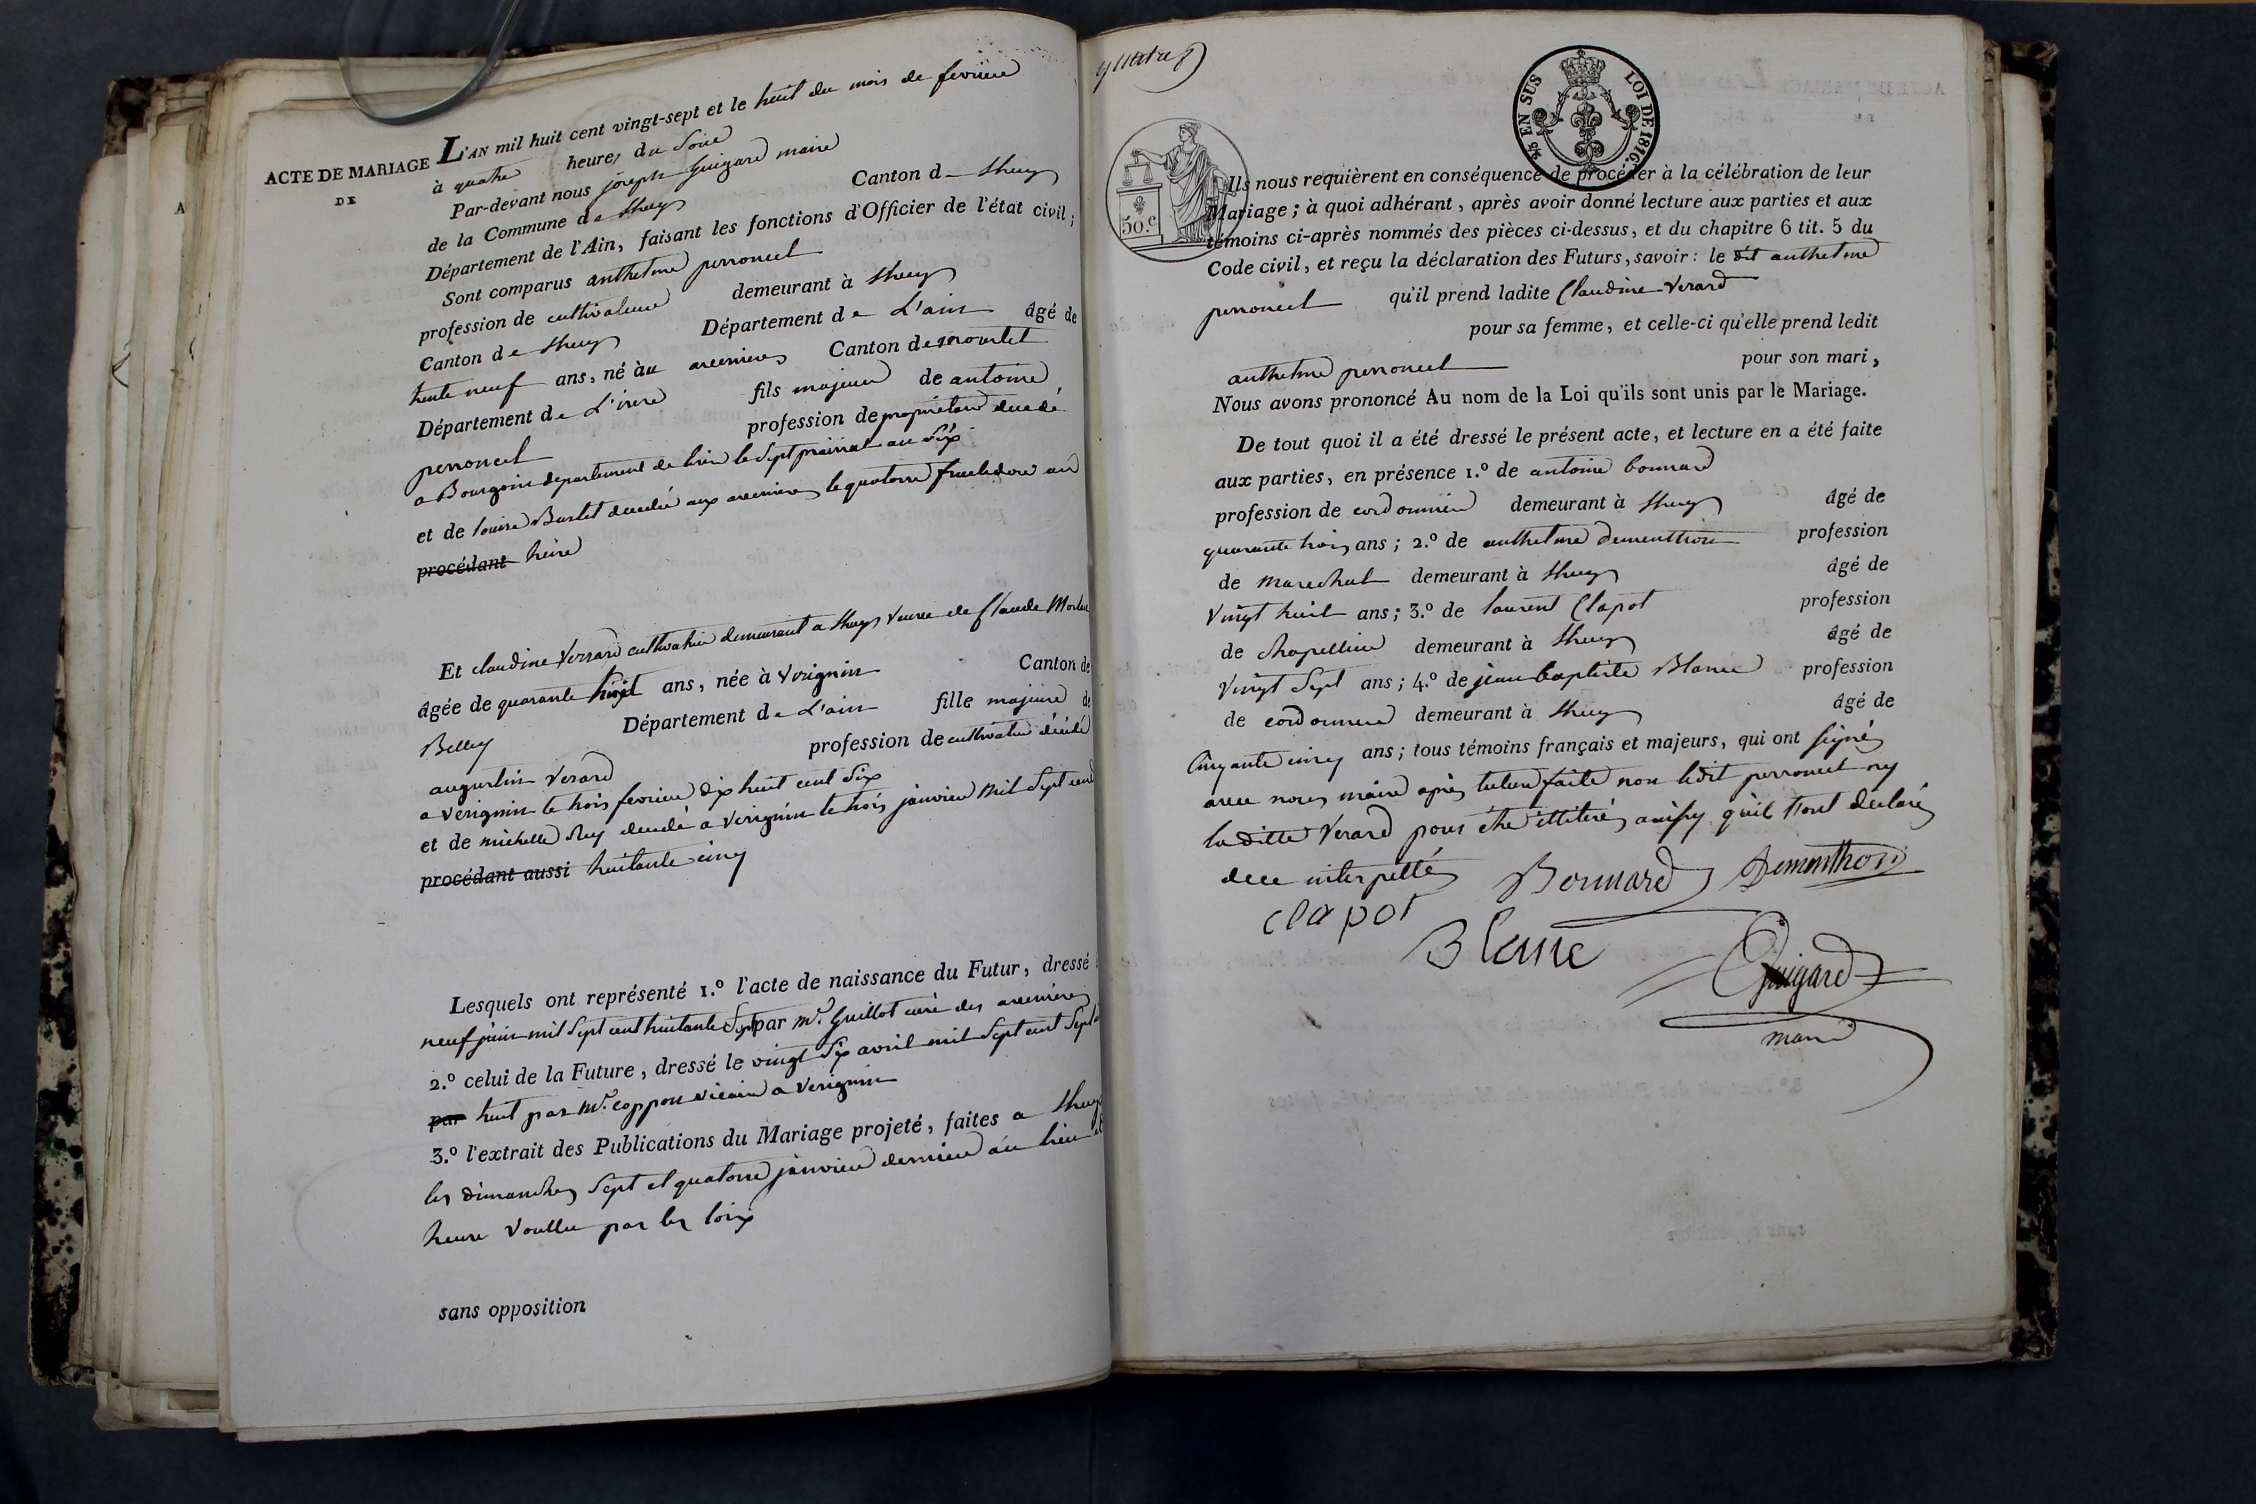 ACTE DE MARIAGE
DE
L'AN mil huit cent vingt-sept et le huit du mois de fevrier
à quatre heures du Soir
Par-devant nous joseph Guigard maire
de la Commune de Lhuys Canton d Lhuys
Département de l'Ain, faisant les fonctions d'Officier de l'état civil ;
Sont comparus anthelme perroncel
profession de cultivateur demeurant à Lhuys
Canton de Lhuys Département de L'ain âgé de
trente neuf ans, né au avenieres Canton de
Département de L'isere fils majeur de antoine
perroncel profession de propriétaire decedé
a Bourgoin departement de le Sept prairial an Six
et de louise Burlet decedée aux avenieres le quatorze fructidor an
procédant treize
Et claudine Verrard cultivatrice demeurant a Lhuys veuve de Claude
âgée de quarante huit ans, née à Virignin Canton de
Belley Département de L'ain fille majeure de
augustin Verard profession de cultivateur décédé
a Virignin le trois fevrier dix huit cent Six
et de michelle Rey decedé a Virignin le trois janvier mil Sept cent
procédant aussi huitante cinq
Lesquels ont représenté 1.º l'acte de naissance du Futur, dressé
neuf juin mil Sept cent huitante Sept par Mr. Guillot curé des avenieres
2.º celui de la Future, dressé le vingt Six avril mil Sept cent Sept
par huit par Mr. coppon vicaire a Virignin
3.º l'extrait des Publications du Mariage projeté, faites a Lhuys
les dimanches Sept et quatorze janvier dernier au lieu et
heure voullu par les loix
sans opposition
quatre
5/2 EN SUS
LOI DE 1816.
50.c
Ils nous requièrent en conséquence de procéder à la célébration de leur
Mariage ; à quoi adhérant, après avoir donné lecture aux parties et aux
témoins ci-après nommés des pièces ci-dessus, et du chapitre 6 tit. 5 du
Code civil, et reçu la déclaration des Futurs, savoir : le dit anthelme
perroncel qu'il prend ladite Claudine Verard
pour sa femme, et celle-ci qu'elle prend ledit
anthelme perroncel pour son mari,
Nous avons prononcé Au nom de la Loi qu'ils sont unis par le Mariage.
De tout quoi il a été dressé le présent acte, et lecture en a été faite
aux parties, en présence 1.º de antoine bonnard
profession de cordonnier demeurant à Lhuys âgé de
quarante trois ans ; 2.º de anthelme demonthon profession
de marechal demeurant à Lhuys âgé de
vingt huit ans ; 3.º de laurent Clapot profession
de chapellier demeurant à Lhuys âgé de
vingt Sept ans ; 4.º de jean baptiste Blanc profession
de cordonnier demeurant à Lhuys âgé de
Cinquante cinq ans ; tous témoins français et majeurs, qui ont signé
avec nous maire après lecture faite non ledit perroncel ny
la ditte Verard pour être illitéré ainsy qu'il l'ont déclaré
de ce interpellé
Bonnard Demonthon
clapot
Blanc
Guigard
maire